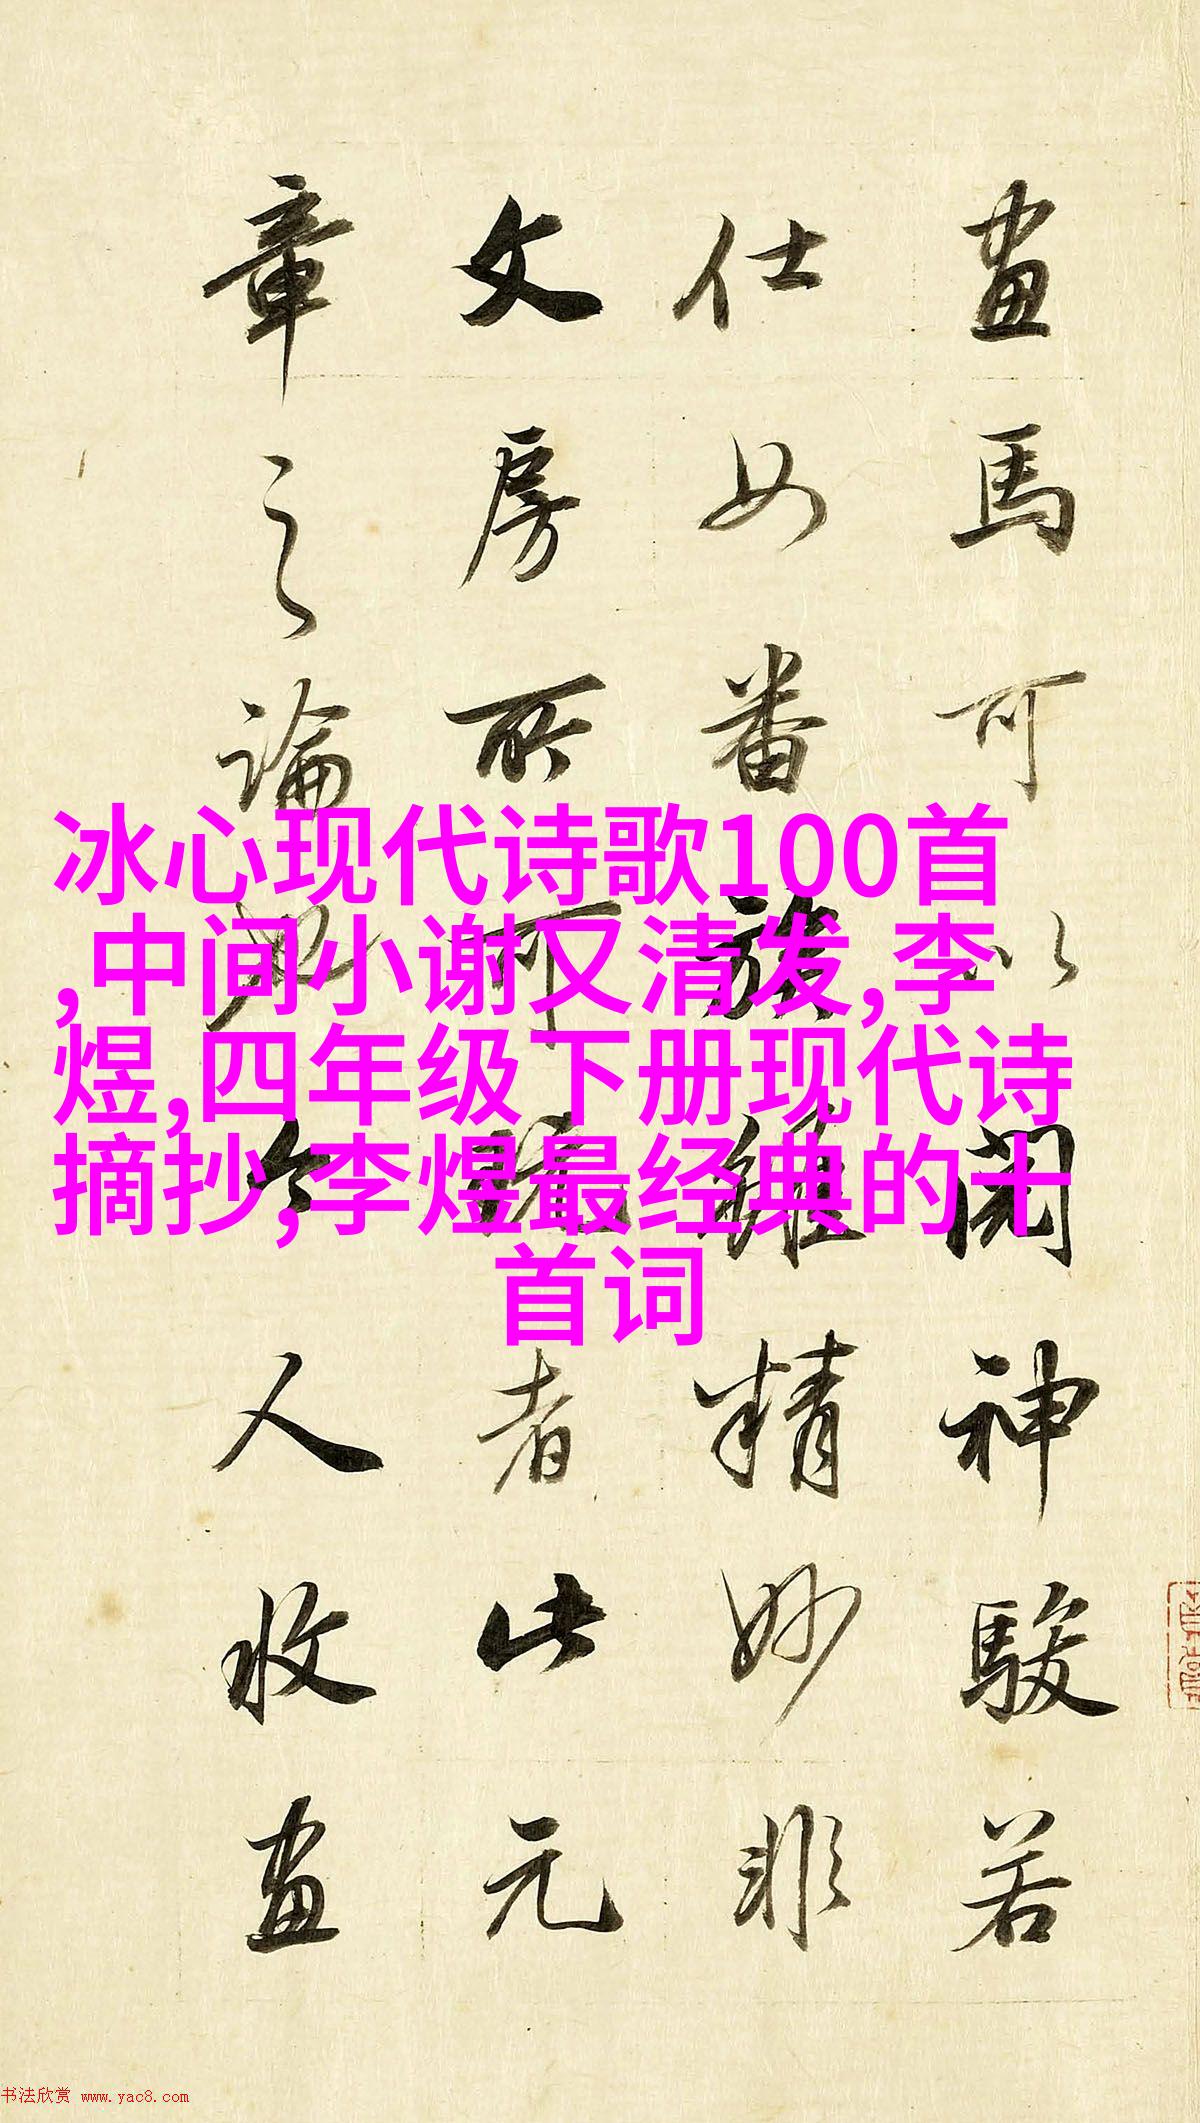 畫馬可以閱神駿若
仕女番族雖精妙非
文房所可者此元
章之論也今人收畫
冰心现代诗歌100首
,中间小谢又清发,李
煜,四年级下册现代诗
摘抄,李煜最经典的十
首词
书法欣赏 www.yac8.com